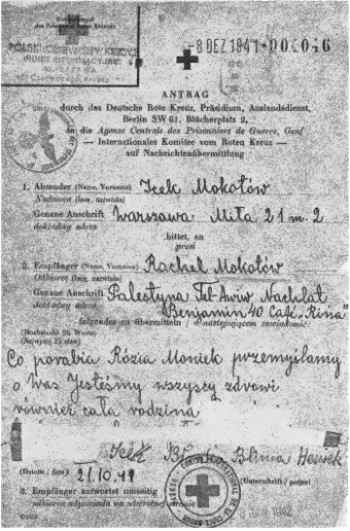 POLSKI CZERWONY KRZYŻ
BIURO INFORMACYJNE
-8 DEZ 1941 * 000046
ANTRAG
durch das Deutsche Rote Kreuz, Präsidium, Auslandsdienst,
Berlin SW 61, Blücherplatz 2,
an die Agence Centrale des Prisonniers de Guerre, Genf
— Internationales Komitee vom Roten Kreuz —
auf Nachrichtenübermittlung
1. Absender (Name, Vorname) Icek Mokotów
Nadawca (Imię, nazwisko)
Genaue Anschrift Warszawa Miła 21 m. 2
dokładny adres
bittet, an
prosi
2. Empfänger (Name, Vorname) Rachel Mokotów
Odbiorca (Imię, nazwisko)
Genaue Anschrift Palestyna Tel-Awiw Nachlat
dokładny adres Benjamin 40 Café „Rina"
folgendes zu übermitteln
(Höchstzahl 25 Worte)
(Najwyżej 25 słów)
Co porabia Rózia Moniek przemyślamy
o Was Jesteśmy wszyscy zdrowi
również cała rodzina
Icek Blimka Hessek
(Datum / data) 21.10.41
(Unterschrift / podpis)
3. Empfänger antwortet umseitig
odbiorca odpowiada na odwrotnej stronie